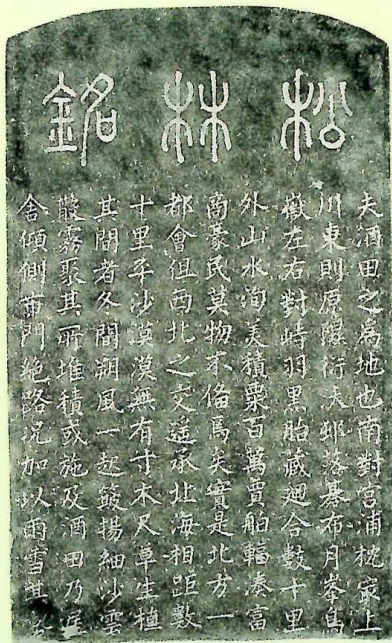 松林銘
夫酒田之爲地也南對宮浦枕㝡上
川東則原隰衍沃邨落棊布月峯鳥
嶽左右對峙羽黑胎藏廻合數十里
外山水洵美積粟百萬賈舶輻湊富
商豪民莫物不俻焉矣實是北方一
都會但西北之交遙承北海相距數
十里平沙漠漠無有寸木尺草生植
其間者冬間朔風一起皷揚細沙雲
散霧聚其所堆積或施及酒田乃屋
舍傾側市門絶路況加以雨雪其